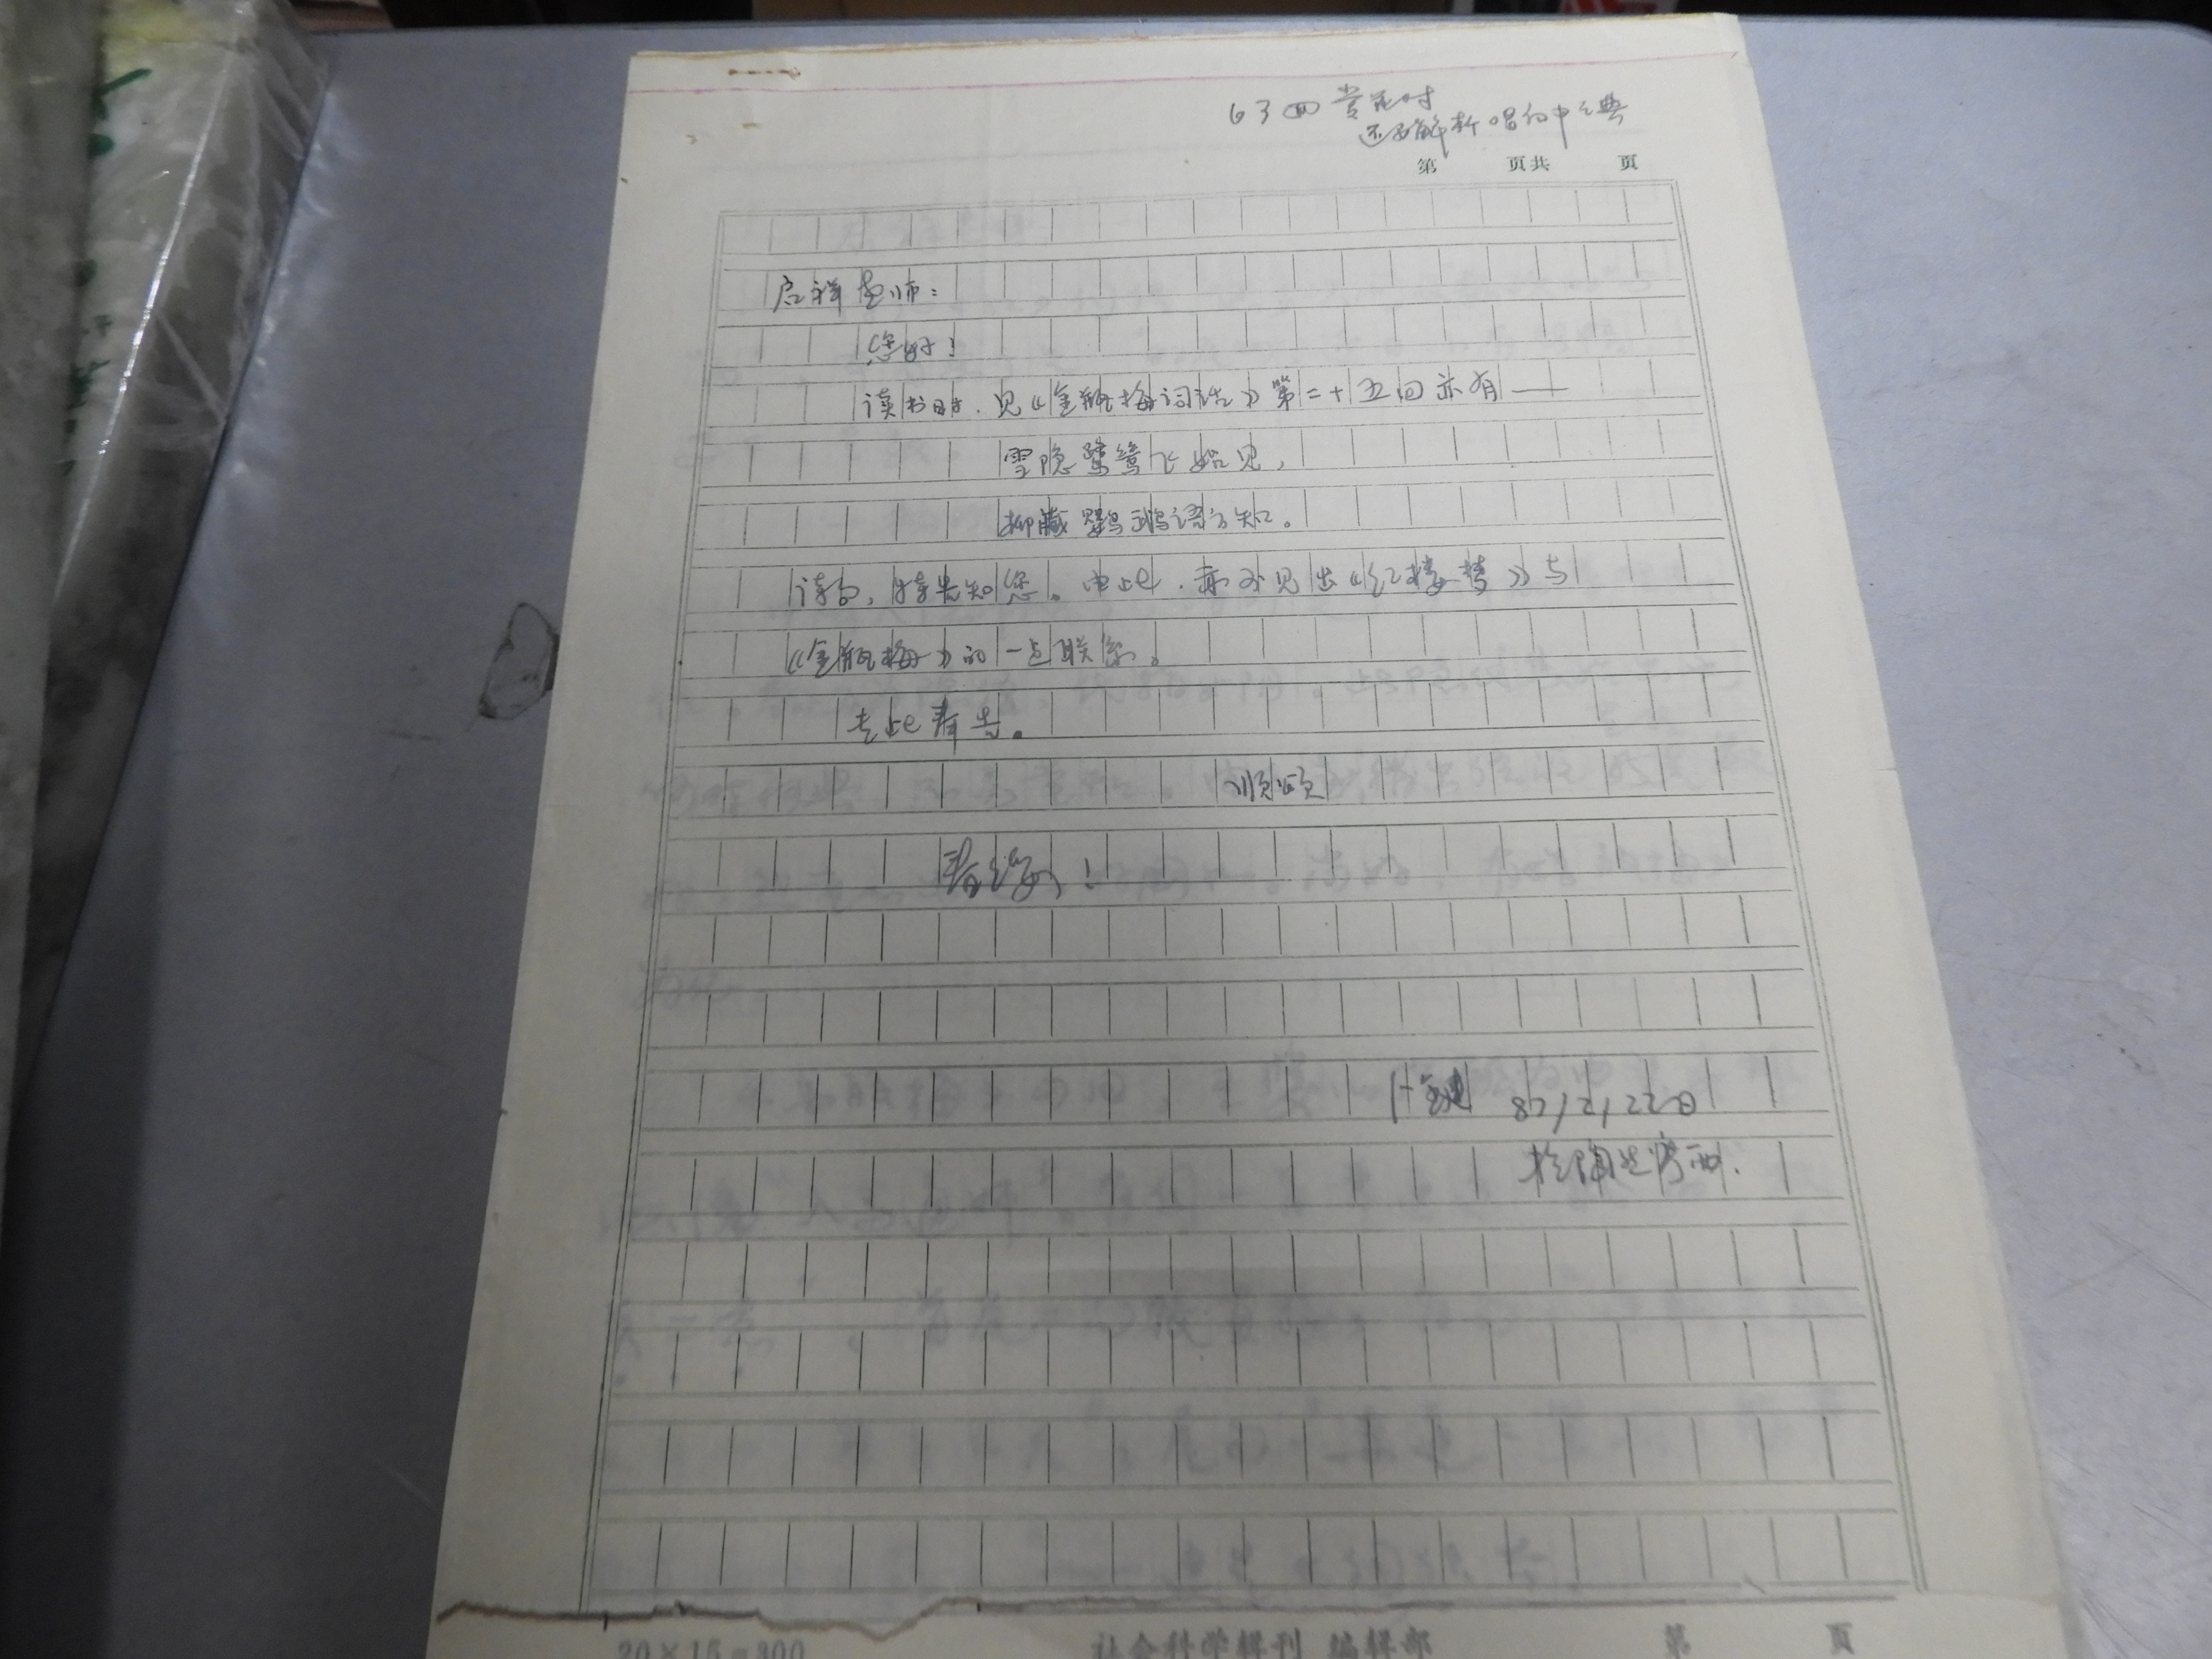 63回 赏花时
还不解析唱的中之典
第 页共 页
启祥老师:
您好!
读书时,见《金瓶梅词话》第二十五回亦有——
雪隐鹭鸶飞始见,
柳藏鹦鹉语方知。
读后,特告知您。由此,亦可见出《红楼梦》与
《金瓶梅》的一点联系。
专此奉告。
顺颂
春绥!
卜键 87,2,22日
20×15=300
社会科学辑刊 编辑部
第 页